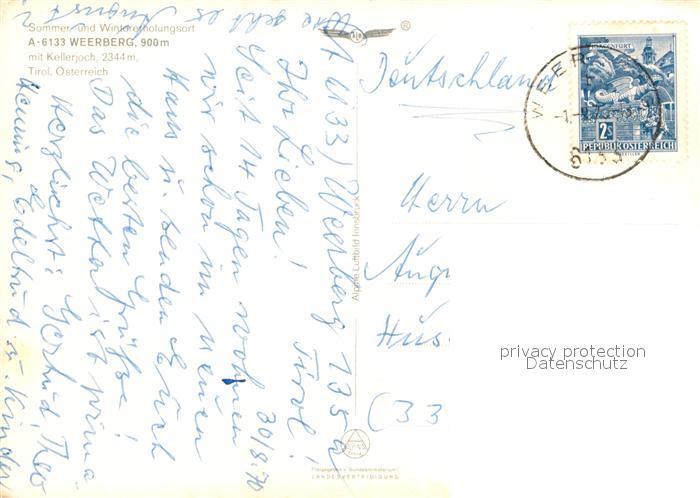 Sommer- und Wintererholungsort
A-6133 WEERBERG, 900 m
mit Kellerjoch, 2344 m,
Tirol, Österreich
Weerberg 135a
Tirol! 30/8.70
Ihr Lieben!
Seit 14 Tagen wohnen
wir schon im neuen
Haus u. senden Euch
die besten Grüße!
Das Wetter ist prima
Herzlichst: Gertrud, Theo
Henning, Edeltrud u. Kinder
Wie geht es
August
Alpine Luftbild Innsbruck
®
Freigegeben v. Bundesministerium f.
LANDESVERTEIDIGUNG
Deutschland
Herrn
Aug
Hüs
(33
KLAGENFURT
2S
REPUBLIK ÖSTERREICH
WEER
6133
privacy protection
Datenschutz